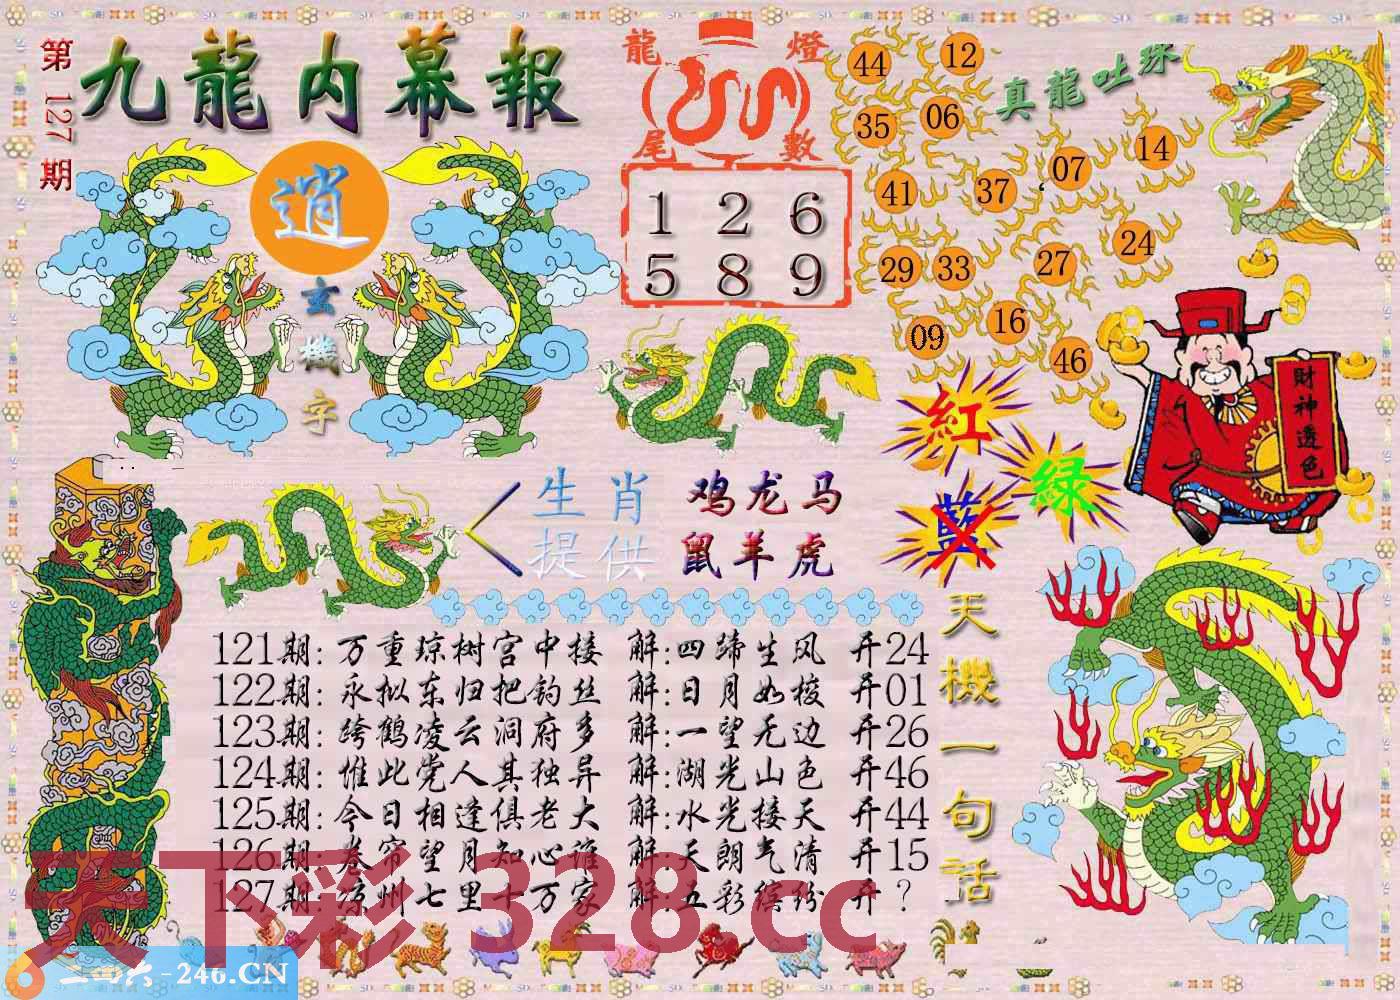 第127期
九龍内幕報
逍
玄機字
龍燈尾數
1 2 6
5 8 9
真龍吐珠
44 12
35 06
41 37 07 14
29 33 27 24
09 16 46
財神透色
紅
绿
藍
生肖提供
鸡龙马
鼠羊虎
天機一句話
121期: 万重琼树宫中接 解:四蹄生风 开24
122期: 永拟东归把钓丝 解:日月如梭 开01
123期: 跨鹤凌云洞府多 解:一望无边 开26
124期: 惟此党人其独异 解:湖光山色 开46
125期: 今日相逢俱老大 解:水光接天 开44
126期: 卷帘望月知心谁 解:天朗气清 开15
127期: 凉州七里十万家 解:五彩缤纷 开?
天下彩 328.cc
二四六-246.CN